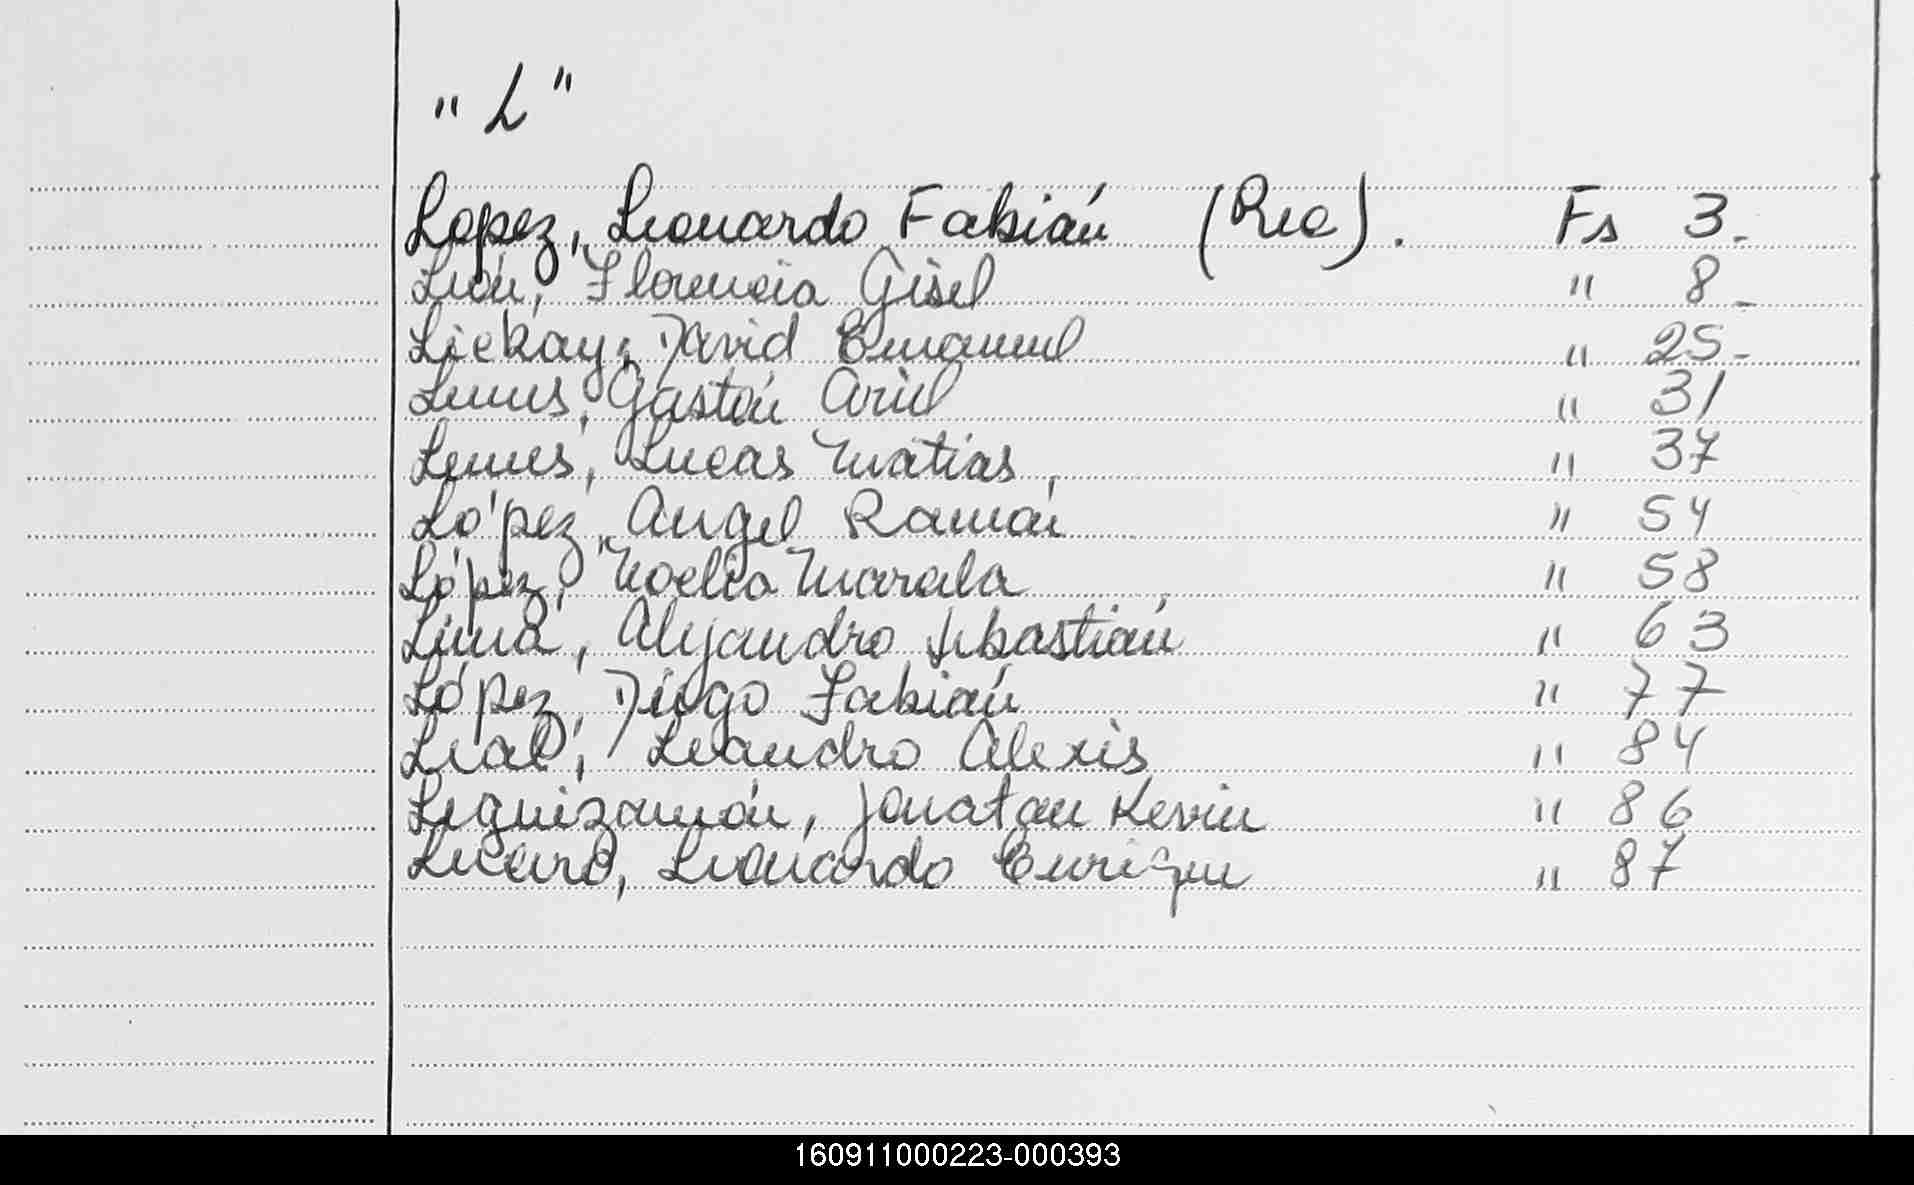 "L"
Lopez, Leonardo Fabián (Rec). Fs 3.-
León, Florencia Gisel " 8 -
Liekay, David Emanuel " 25-
Lemes, Gastón Ariel " 31
Lemes, Lucas Matias " 37
López, Angel Ramón " 54
López, Noelia Mariela " 58
Luna, Alejandro Sebastián " 63
López, Diego Fabián " 77
Leal, Leandro Alexis " 84
Leguizamón, Jonatan Kevin " 86
Lucero, Leonardo Enrique " 87
160911000223-000393